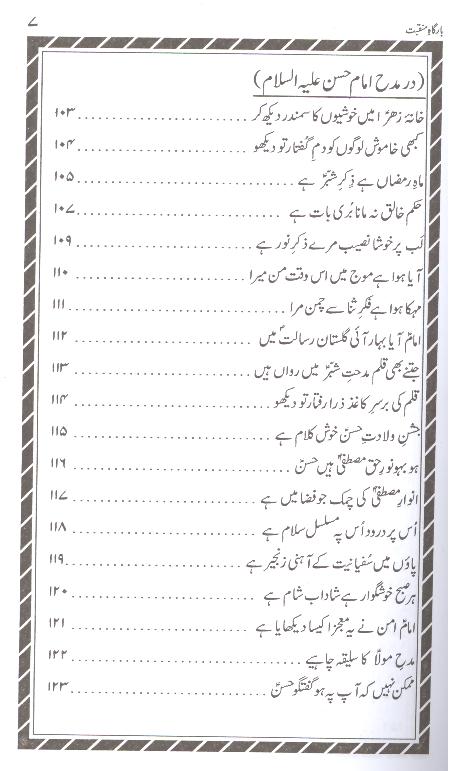 بارگاہِ منقبت ۷
(در مدح امام حسن علیہ السلام)
خانۂ زہرؑا میں خوشیوں کا سمندر دیکھ کر ۱۰۳
کبھی خاموش لوگوں کو دمِ گفتار تو دیکھو ۱۰۴
ماہِ رمضاں ہے ذِکرِ شبّرؑ ہے ۱۰۵
حکم خالق نہ مانا بُری بات ہے ۱۰۷
لب پر خوشا نصیب مرے ذکرِ نور ہے ۱۰۹
آیا ہوا ہے موج میں اس وقت من میرا ۱۱۰
مہکا ہوا ہے فکرِ ثنا سے چمن مرا ۱۱۱
امامؑ آیا بہار آئی گلستانِ رسالتؐ میں ۱۱۲
جتنے بھی قلم مدحتِ شبّرؑ میں رواں ہیں ۱۱۳
قلم کی برسرِ کاغذ ذرا رفتار تو دیکھو ۱۱۴
جشنِ ولادتِ حسنؑ خوش کلام ہے ۱۱۵
ہو بہو نورِ حق مصطفیٰؐ ہیں حسنؑ ۱۱۶
انوارِ مصطفیٰؐ کی چمک جو فضا میں ہے ۱۱۷
اُس پر درود اُس پہ مسلسل سلام ہے ۱۱۸
پاؤں میں سُفیانیت کے آہنی زنجیر ہے ۱۱۹
ہر صبح خوشگوار ہے شاداب شام ہے ۱۲۰
امامِ امن نے یہ معجزا کیسا دیکھایا ہے ۱۲۱
مدحِ مولاؑ کا سلیقہ چاہیے ۱۲۲
ممکن نہیں کہ آپ پہ ہو گفتگو حسنؑ ۱۲۳